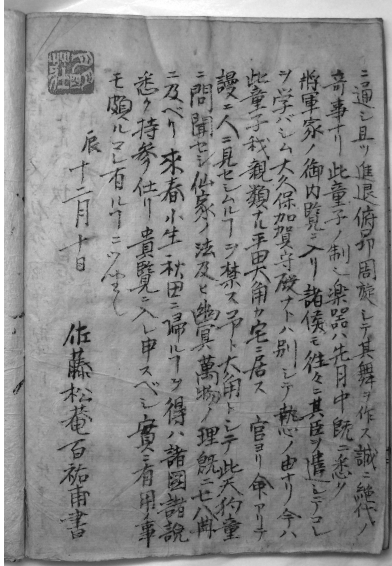 ニ通シ且ツ進退俯昴周旋シテ其舞ヲ作ス誠ニ絶代ノ
奇事ナリ此童子ノ制シ楽器ハ先月中既ニ悉ク
将軍家ノ御内覧ニ入リ諸侯モ往々其臣ヲ遣シテコレ
ヲ学バシム大久保加賀守殿ナトハ別シテ執心ノ由ナリ今ハ
此童子我親類ナル平田大角カ宅ニ居ス 官ヨリ命アリテ
謾ニ人ニ見セシムルヿヲ禁ス 大角トシテ此天狗童
ニ問聞セシ仙家ノ法及ヒ幽冥萬物ノ理既ニ七八冊
ニ及ベリ 来春小生秋田ニ帰ルヿヲ得ハ諸図諸説
悉ク持参仕リ貴覧ニ入レ申スベシ實ニ有用ノ事
モ頗ルコレ有ルヿニ
辰十二月十日
佐藤松菴百祐甫書